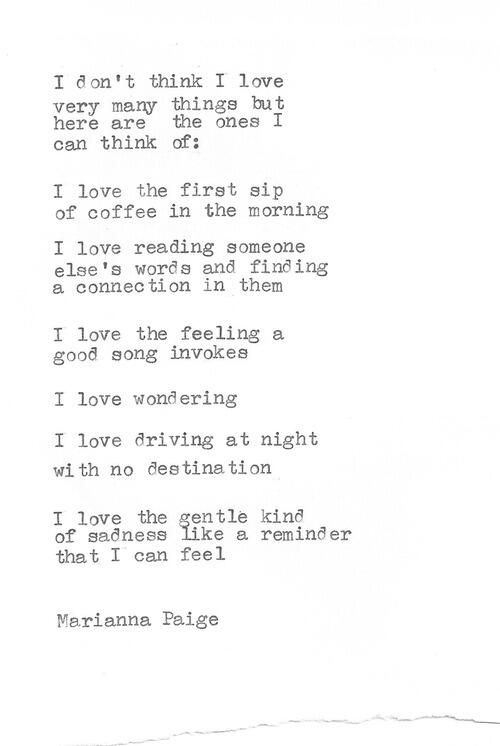 I don't think I love
very many things but
here are the ones I
can think of:
I love the first sip
of coffee in the morning
I love reading someone
else's words and finding
a connection in them
I love the feeling a
good song invokes
I love wondering
I love driving at night
with no destination
I love the gentle kind
of sadness like a reminder
that I can feel
Marianna Paige